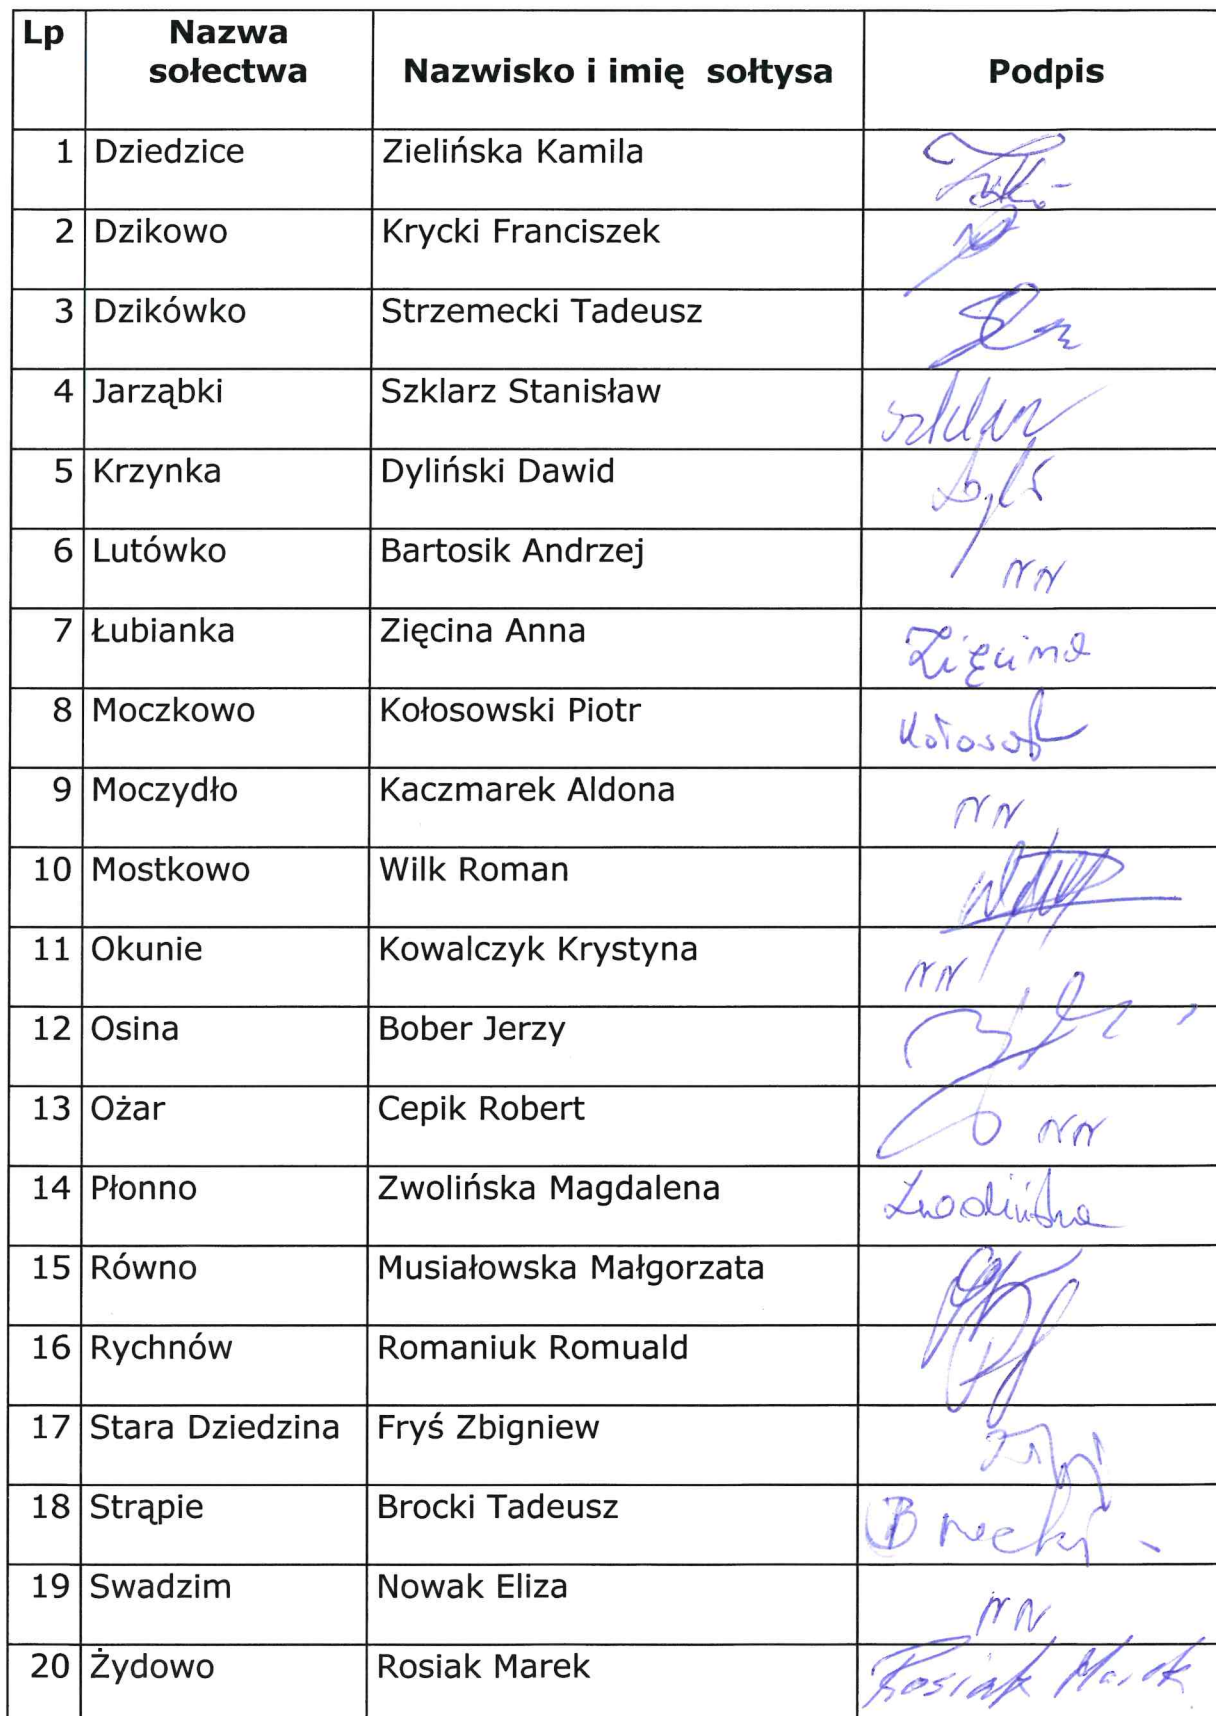 Lp Nazwa sołectwa Nazwisko i imię sołtysa Podpis
1 Dziedzice Zielińska Kamila
2 Dzikowo Krycki Franciszek
3 Dzikówko Strzemecki Tadeusz
4 Jarząbki Szklarz Stanisław
5 Krzynka Dyliński Dawid
6 Lutówko Bartosik Andrzej NN
7 Łubianka Zięcina Anna Zięcina
8 Moczkowo Kołosowski Piotr
9 Moczydło Kaczmarek Aldona NN
10 Mostkowo Wilk Roman
11 Okunie Kowalczyk Krystyna NN
12 Osina Bober Jerzy
13 Ożar Cepik Robert NN
14 Płonno Zwolińska Magdalena Zwolińska
15 Równo Musiałowska Małgorzata
16 Rychnów Romaniuk Romuald
17 Stara Dziedzina Fryś Zbigniew
18 Strąpie Brocki Tadeusz Brocki
19 Swadzim Nowak Eliza NN
20 Żydowo Rosiak Marek Rosiak Marek